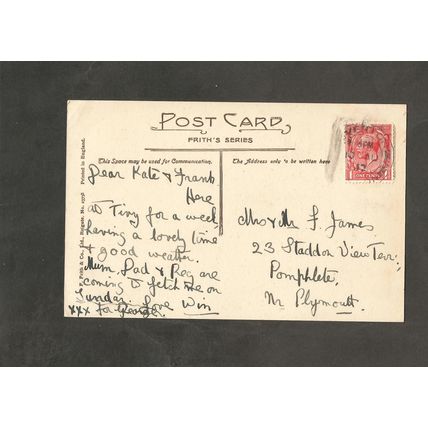 POST CARD
FRITH'S SERIES
This Space may be used for Communication.
The Address only to be written here
Dear Kate & Frank
Here
at Tivy for a week
having a lovely time
& good weather.
Mum, Dad & Reg are
coming to fetch me on
Sunday. Love Win
xxx for George
Mrs & Mr F. James
23 Staddon View Terr:,
Pomphlete,
Nr Plymouth.
F. Frith & Co., Ltd., Reigate. No.
Printed in England.
PM